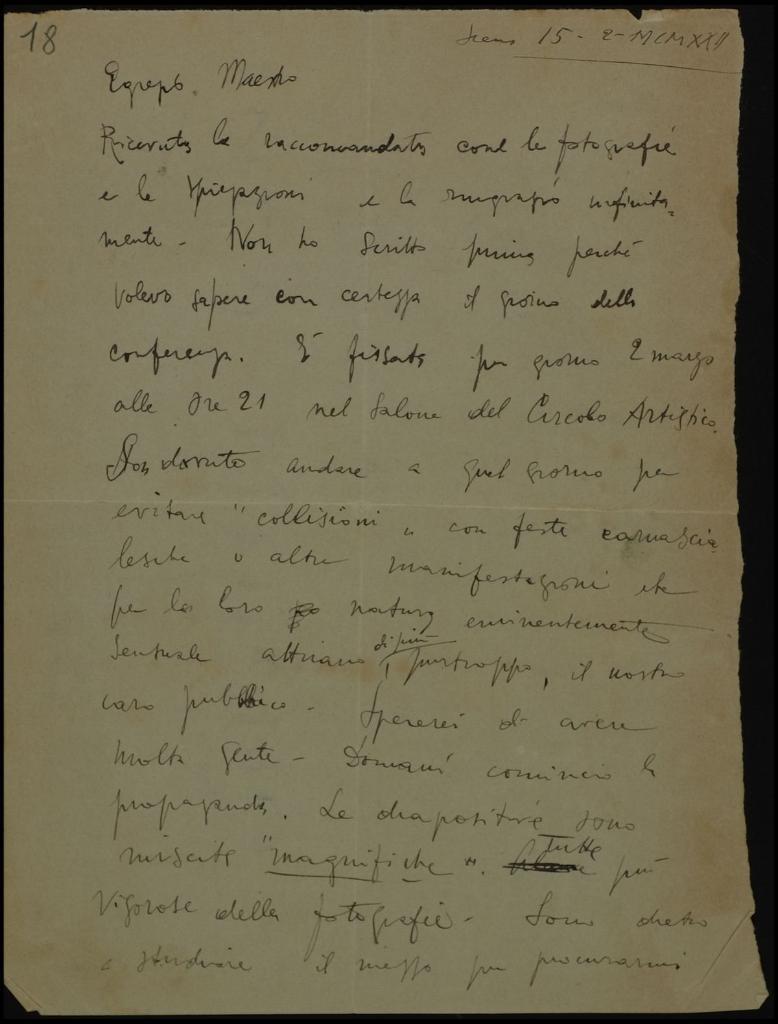 18
15 - 2 - MCMXXII
Egregio Maestro
Ricevuta la raccomandata con le fotografie
e le spiegazioni e la ringrazio infinita=
mente - Non ho scritto prima perché
volevo sapere con certezza il giorno della
conferenza. È fissata per giorno 2 marzo
alle ore 21 nel Salone del Circolo Artistico.
Son dovuto andare a quel giorno per
evitare "collisioni" con feste carnascia=
lesche o altre manifestazioni che
per la loro natura eminentemente
sensuale attirano di più, purtroppo, il nostro
caro pubblico - Spererei di avere
molta gente - Domani comincio la
propaganda. Le diapositive sono
riuscite "magnifiche". tutte più
vigorose delle fotografie - Sono dietro
a studiare il mezzo per procurarmi